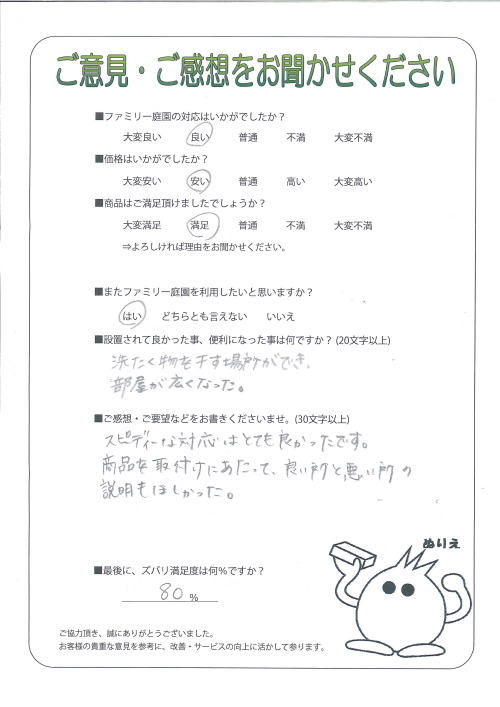 ご意見・ご感想をお聞かせください
■ファミリー庭園の対応はいかがでしたか？
大変良い 良い 普通 不満 大変不満
■価格はいかがでしたか？
大変安い 安い 普通 高い 大変高い
■商品はご満足頂けましたでしょうか？
大変満足 満足 普通 不満 大変不満
⇒よろしければ理由をお聞かせください。
■またファミリー庭園を利用したいと思いますか？
はい どちらとも言えない いいえ
■設置されて良かった事、便利になった事は何ですか？(20文字以上)
洗たく物を干す場所ができ、
部屋が広くなった。
■ご感想・ご要望などをお書きくださいませ。(30文字以上)
スピディーな対応はとても良かったです。
商品を取付けにあたって、良い所と悪い所の
説明もほしかった。
ぬりえ
■最後に、ズバリ満足度は何%ですか？
80 %
ご協力頂き、誠にありがとうございました。
お客様の貴重な意見を参考に、改善・サービスの向上に活かして参ります。